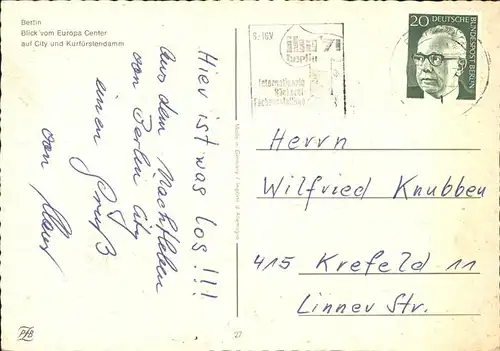 Berlin
Blick vom Europa Center
auf City und Kurfürstendamm
Hier ist was los!!!
Aus dem Nachtleben
von Berlin City
einen Gruß
von Klaus
Made in Germany
20 DEUTSCHE
BUNDESPOST BERLIN
'71
berlin
Internationale
Herrn
Wilfried Knubben
415 Krefeld 11
Linner Str.
27